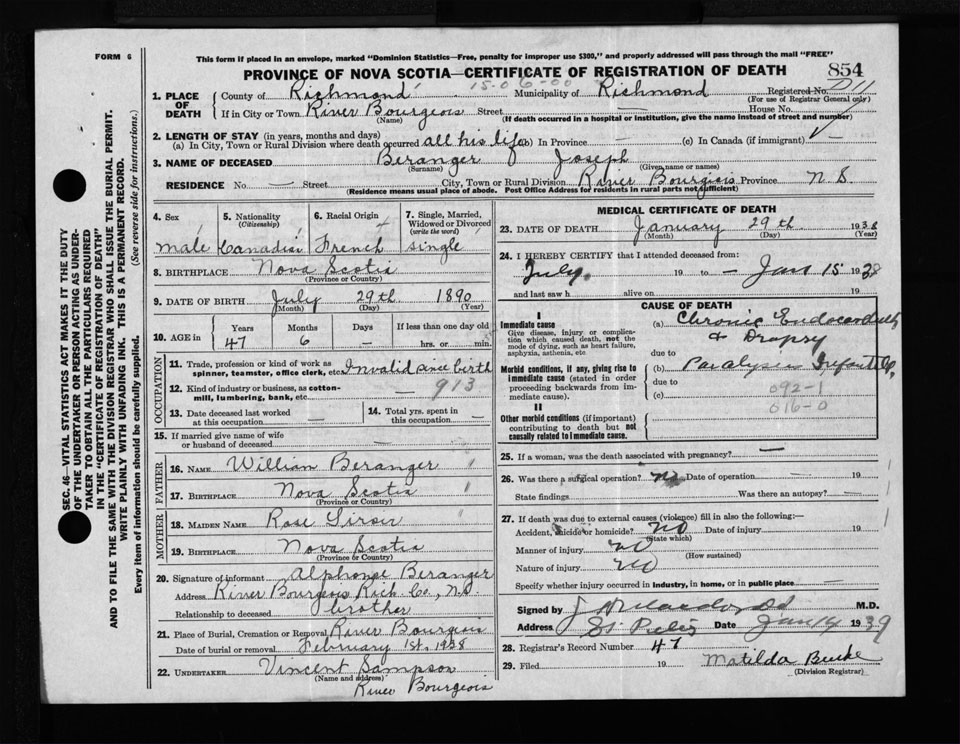 FORM 6
This form if placed in an envelope, marked "Dominion Statistics—Free, penalty for improper use $300," and properly addressed will pass through the mail "FREE"
PROVINCE OF NOVA SCOTIA—CERTIFICATE OF REGISTRATION OF DEATH 854
1. PLACE OF DEATH
County of Richmond 15-06-00 Municipality of Richmond Registered No.
(For use of Registrar General only)
If in City or Town River Bourgeois Street — House No.
(Name) (If death occurred in a hospital or institution, give the name instead of street and number)
2. LENGTH OF STAY (in years, months and days)
(a) In City, Town or Rural Division where death occurred all his life (b) In Province — (c) In Canada (if immigrant)
3. NAME OF DECEASED Beranger Joseph
(Surname) (Given name or names)
RESIDENCE No. — Street City, Town or Rural Division River Bourgeis Province N S.
(Residence means usual place of abode. Post Office Address for residents in rural parts not sufficient)
4. Sex male
5. Nationality (Citizenship) Canadian
6. Racial Origin French
7. Single, Married, Widowed or Divorced (write the word) single
8. BIRTHPLACE Nova Scotia
(Province or Country)
9. DATE OF BIRTH July 29th 1890
(Month) (Day) (Year)
10. AGE in Years Months Days If less than one day old
47 6 — hrs. or min.
OCCUPATION
11. Trade, profession or kind of work as spinner, teamster, office clerk, etc. Invalid since birth
12. Kind of industry or business, as cotton-mill, lumbering, bank, etc. 913
13. Date deceased last worked at this occupation —
14. Total yrs. spent in this occupation —
15. If married give name of wife or husband of deceased —
FATHER
16. NAME William Beranger
17. BIRTHPLACE Nova Scotia
(Province or Country)
MOTHER
18. MAIDEN NAME Rose
19. BIRTHPLACE Nova Scotia
(Province or Country)
20. Signature of informant Alphonse Beranger
Address River Bourgeois Rich. Co., N.S.
Relationship to deceased brother
21. Place of Burial, Cremation or Removal River Bourgeois
Date of burial or removal February 1st, 1938
22. UNDERTAKER Vincent Sampson
(Name and address) River Bourgeois
MEDICAL CERTIFICATE OF DEATH
23. DATE OF DEATH January 29th 1938
(Month) (Day) (Year)
24. I HEREBY CERTIFY that I attended deceased from:
July 19 to — Jan 15 1938
and last saw h alive on 19
CAUSE OF DEATH
I
Immediate cause
Give disease, injury or complication which caused death, not the mode of dying, such as heart failure, asphyxia, asthenia, etc
(a) Chronic Endocarditis
& Dropsy
due to
Morbid conditions, if any, giving rise to immediate cause (stated in order proceeding backwards from immediate cause).
(b) Paralysis Infantile
due to 092-1
(c) 016-0
II
Other morbid conditions (if important) contributing to death but not causally related to immediate cause.
25. If a woman, was the death associated with pregnancy? —
26. Was there a surgical operation? no Date of operation — 19
State findings Was there an autopsy? —
27. If death was due to external causes (violence) fill in also the following:—
Accident, suicide or homicide? no Date of injury 19
(State which)
Manner of injury no
(How sustained)
Nature of injury no
Specify whether injury occurred in industry, in home, or in public place —
Signed by M.D.
Address St Peters Date Jan 14 1939
28. Registrar's Record Number 47
29. Filed 19 Matilda Burke
(Division Registrar)
SEC. 46—VITAL STATISTICS ACT MAKES IT THE DUTY
OF THE UNDERTAKER OR PERSON ACTING AS UNDER-
TAKER TO OBTAIN ALL THE PARTICULARS REQUIRED
IN THE "CERTIFICATE OF REGISTRATION OF DEATH"
AND TO FILE THE SAME WITH THE DIVISION REGISTRAR WHO SHALL ISSUE THE BURIAL PERMIT.
WRITE PLAINLY WITH UNFADING INK. THIS IS A PERMANENT RECORD.
Every item of information should be carefully supplied. (See reverse side for instructions.)